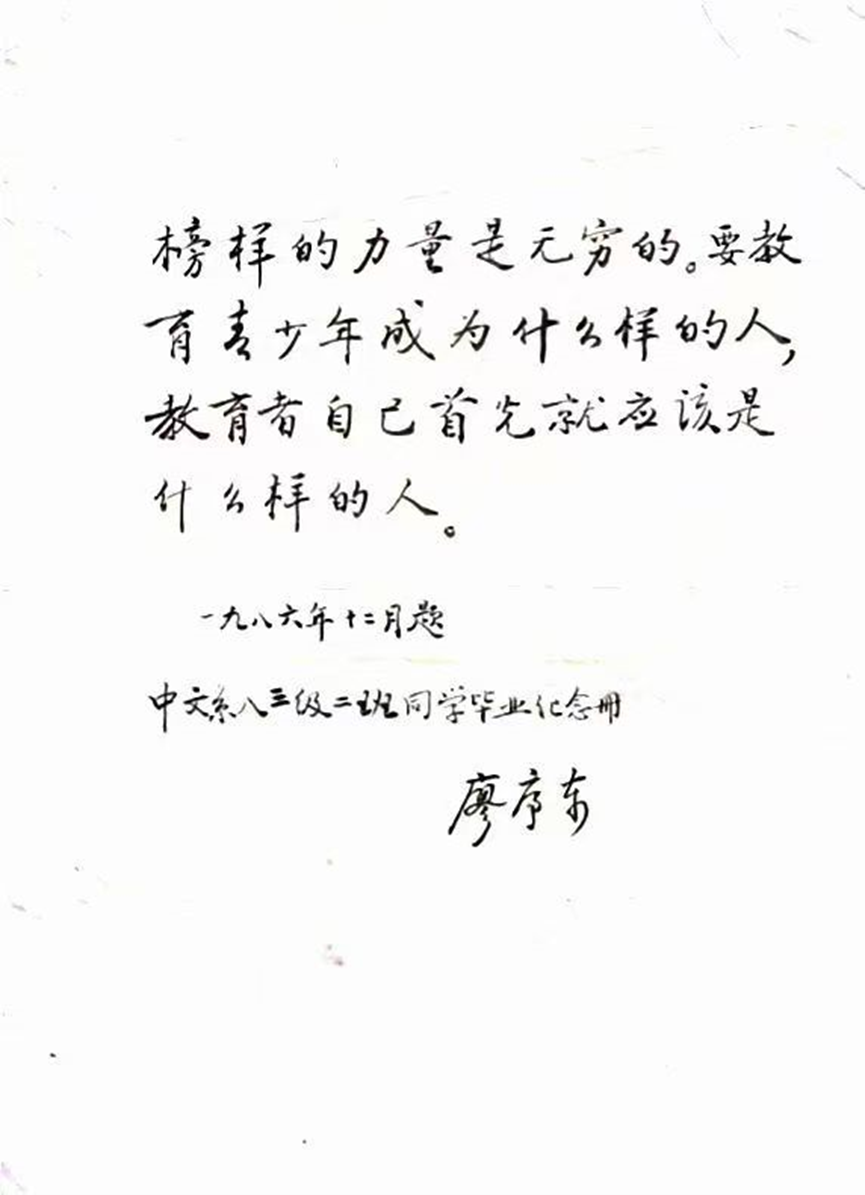 榜样的力量是无穷的。要教
育青少年成为什么样的人，
教育者自己首先就应该是
什么样的人。
一九八六年十二月题
中文系八三级二班同学毕业纪念册
廖序东